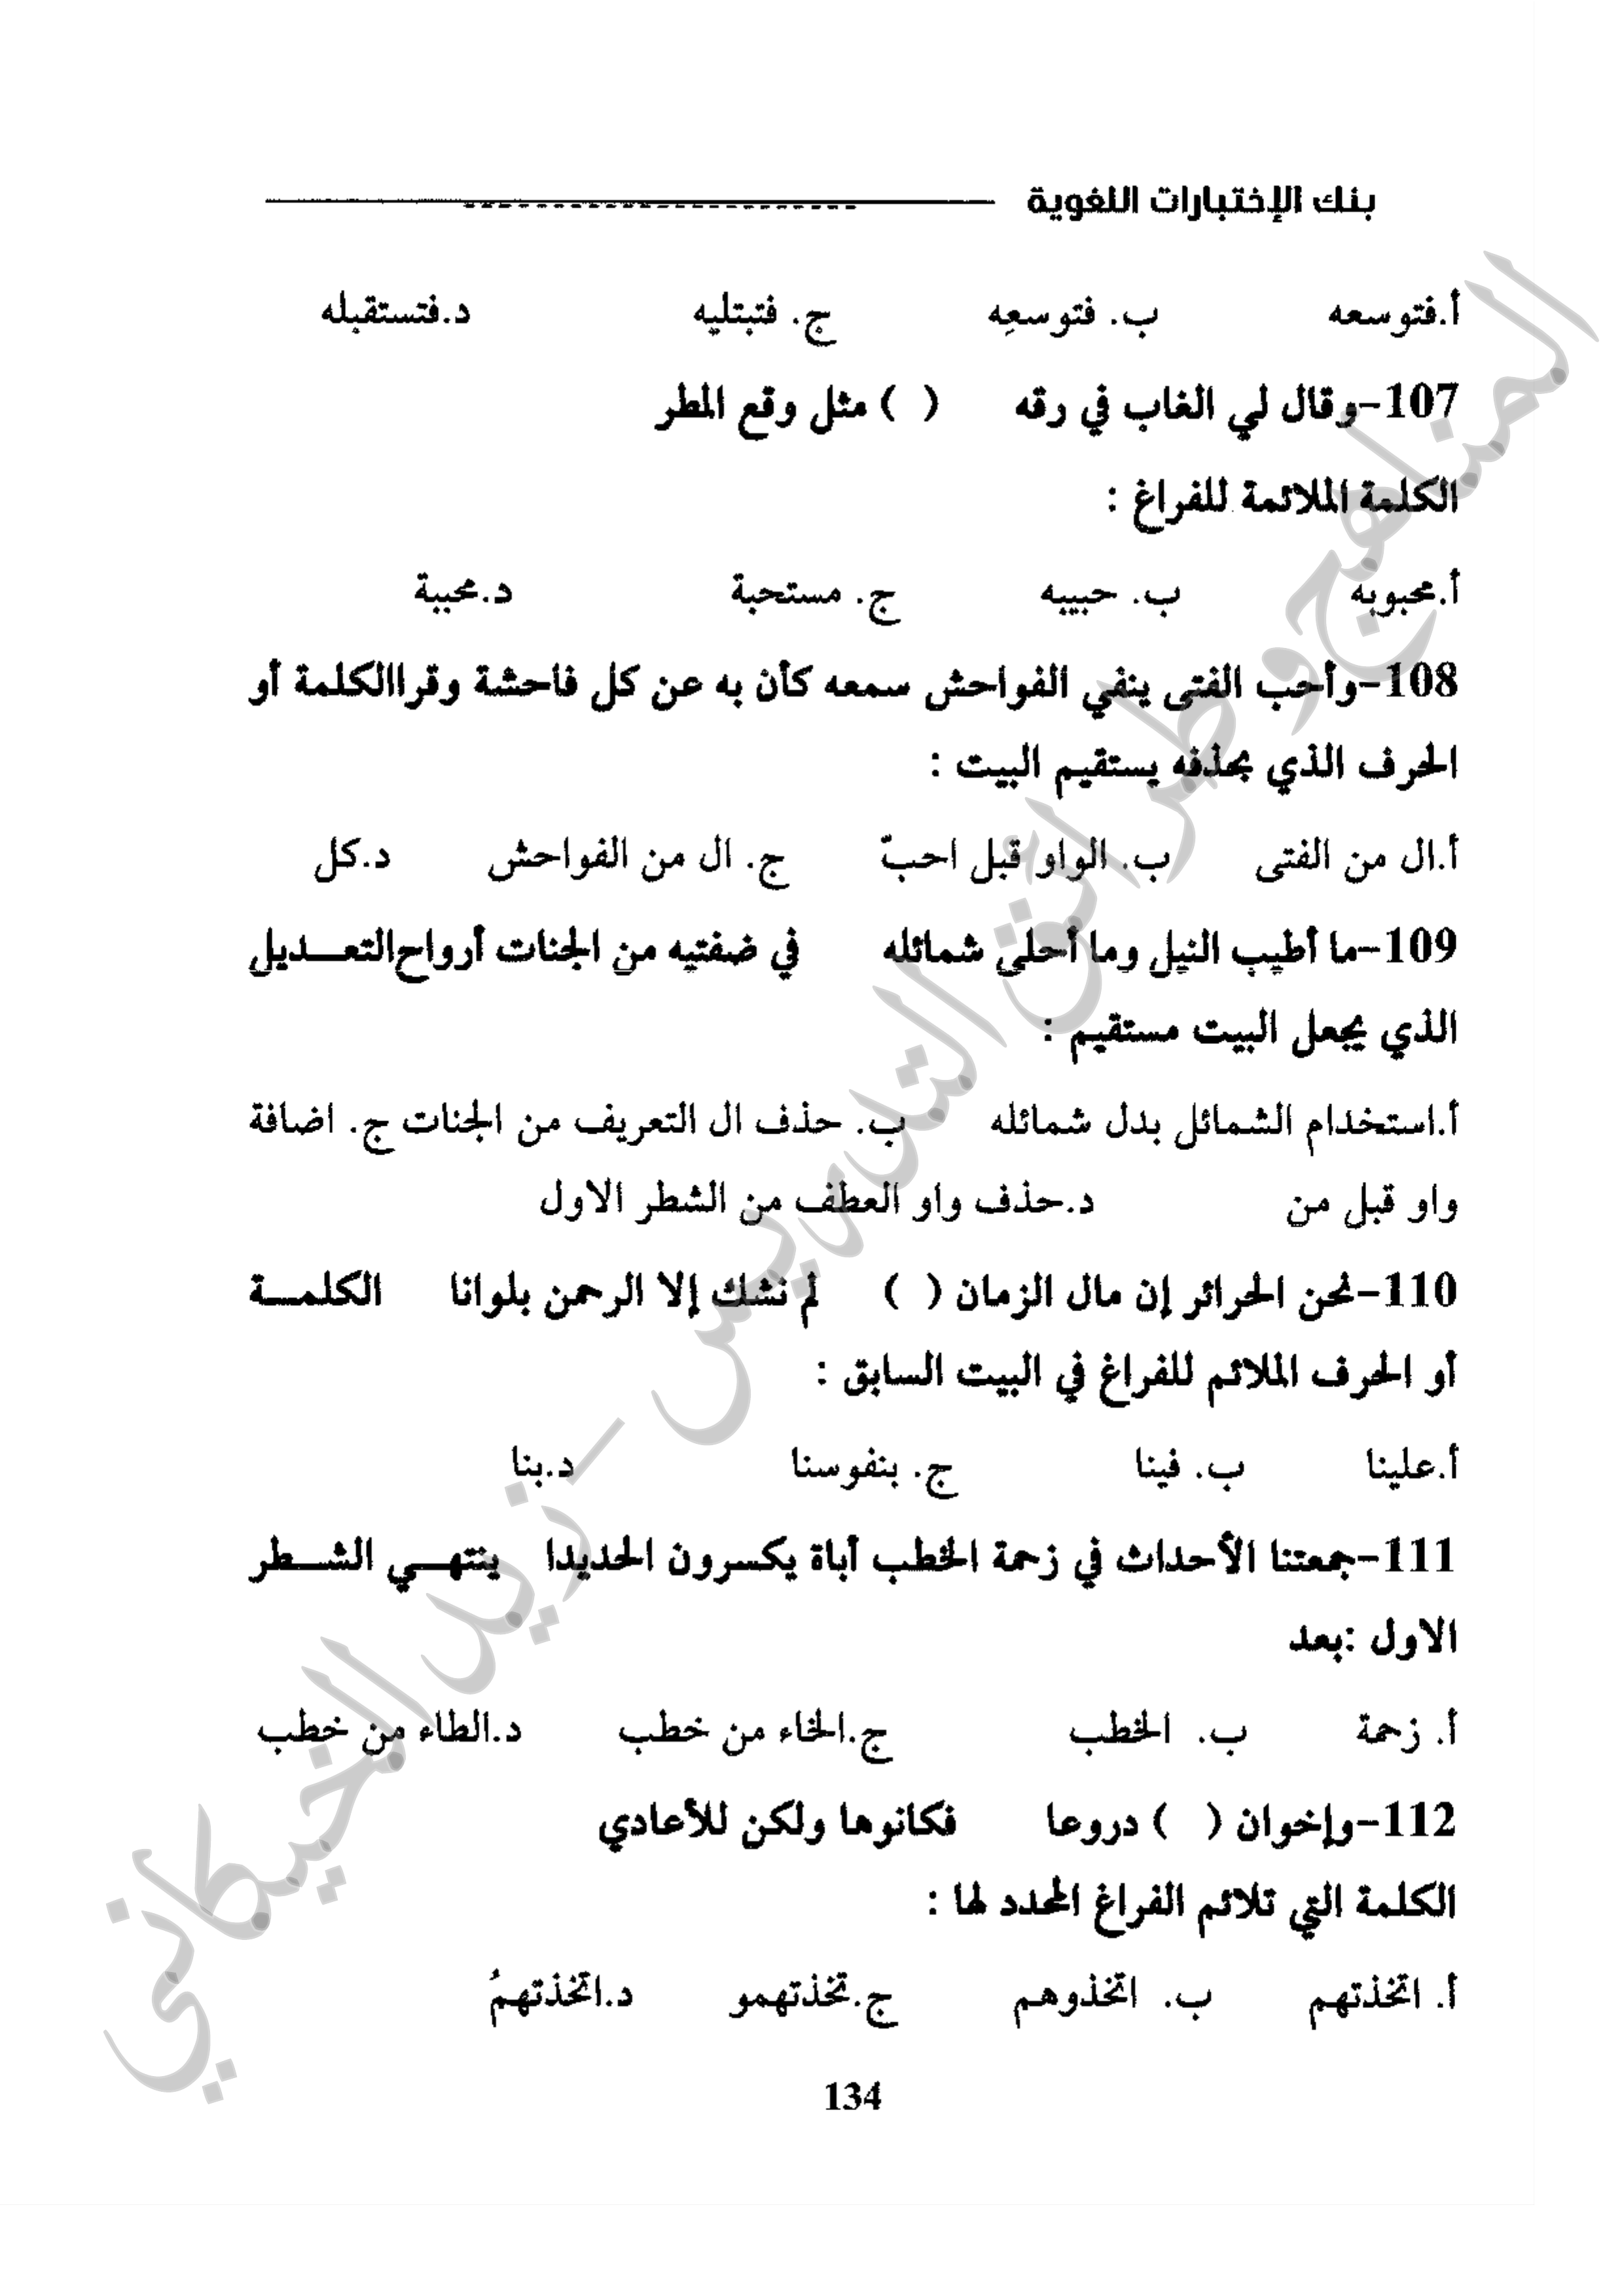 بنك الإختبارات اللغوية
أ.فتوسعه ب. فتوسعِه ج. فتبتليه د.فتستقبله
107-وقال لي الغاب في رقه ( ) مثل وقع المطر
الكلمة الملائمة للفراغ :
أ.محبوبه ب. حبيبه ج. مستحبة د.محببة
108-وأحب الفتى ينفي الفواحش سمعه كأن به عن كل فاحشة وقراالكلمة أو
الحرف الذي بحذفه يستقيم البيت :
أ.ال من الفتى ب. الواو قبل احبّ ج. ال من الفواحش د.كل
109-ما أطيب النيل وما أحلى شمائله في ضفتيه من الجنات أرواحالتعـــديل
الذي يجعل البيت مستقيم :
أ.استخدام الشمائل بدل شمائله ب. حذف ال التعريف من الجنات ج. اضافة
واو قبل من د.حذف واو العطف من الشطر الاول
110-نحن الحرائر إن مال الزمان ( ) لم نشك إلا الرحمن بلوانا الكلمـــة
أو الحرف الملائم للفراغ في البيت السابق :
أ.علينا ب. فينا ج. بنفوسنا د.بنا
111-جمعتنا الأحداث في زحمة الخطب أباة يكسرون الحديدا ينتهـــي الشـــطر
الاول :بعد
أ. زحمة ب. الخطب ج.الخاء من خطب د.الطاء من خطب
112-وإخوان ( ) دروعا فكانوها ولكن للأعادي
الكلمة التي تلائم الفراغ المحدد لها :
أ. اتخذتهم ب. اتخذوهم ج.تخذتهمو د.اتخذتهمُ
134
المناهج وطرائق التدريس - زيد الخيكاني